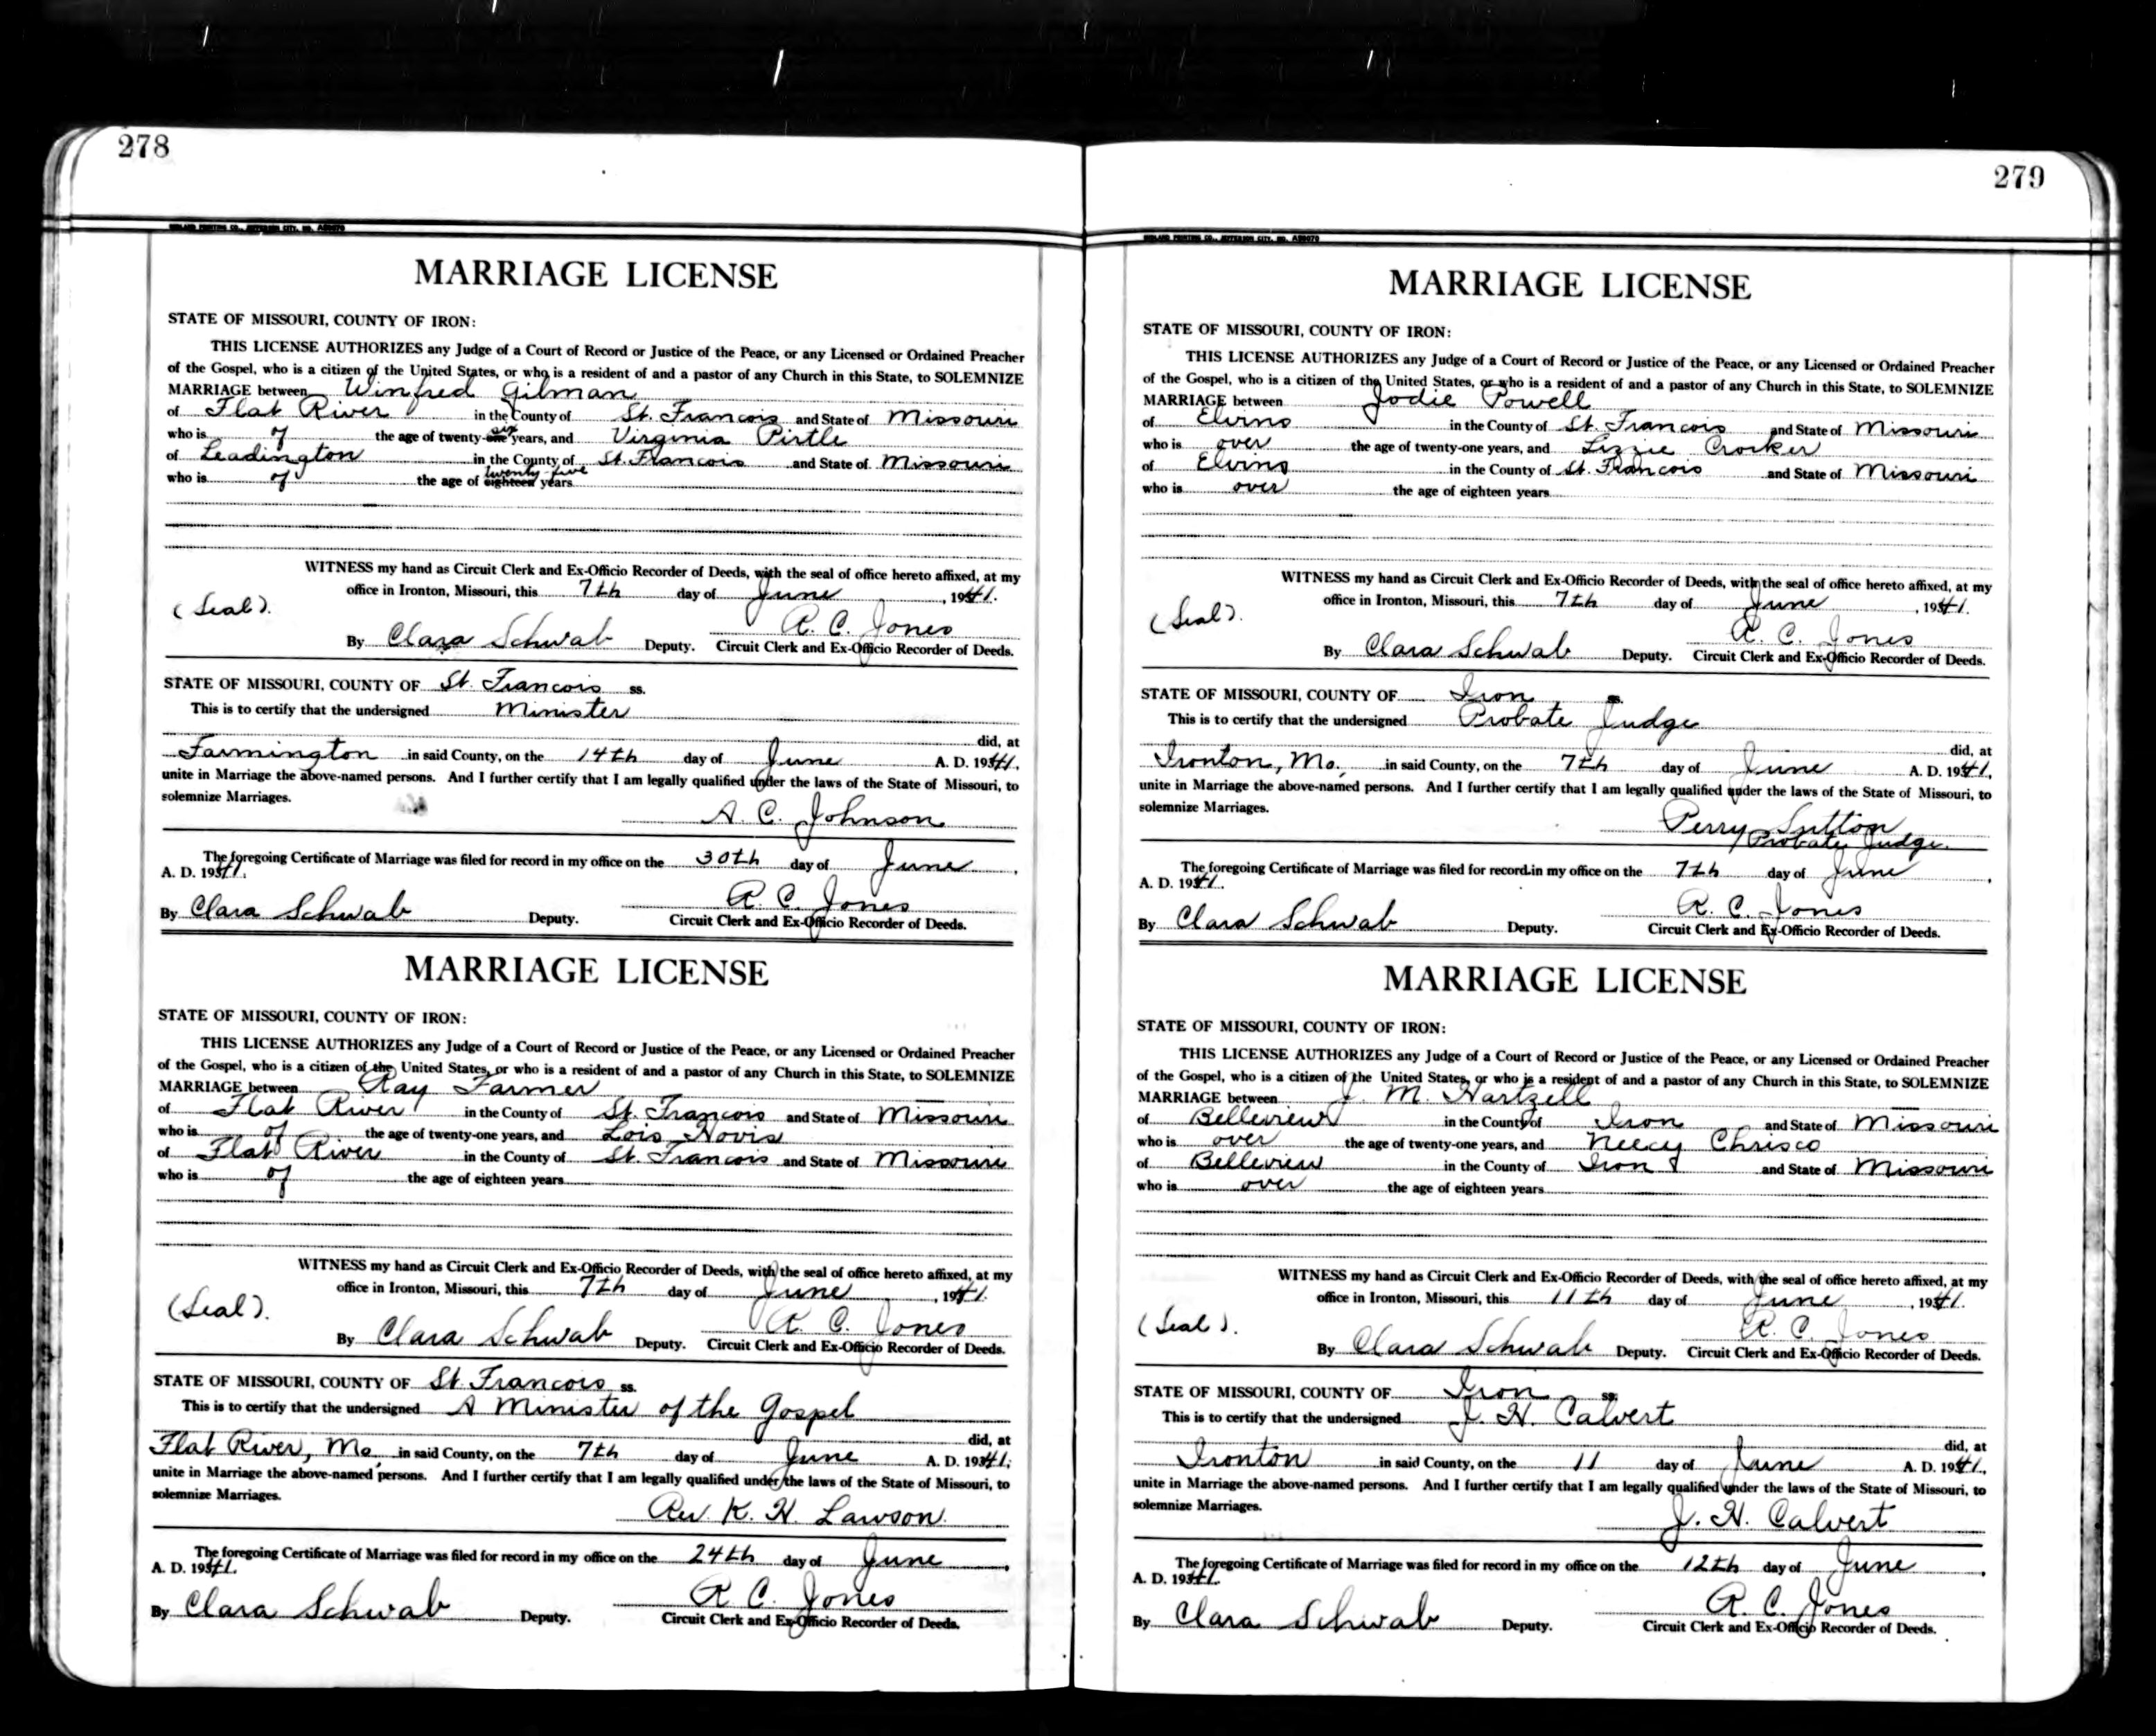 278
MIDLAND PRINTING CO., JEFFERSON CITY, MO. A50070
MARRIAGE LICENSE
STATE OF MISSOURI, COUNTY OF IRON:
THIS LICENSE AUTHORIZES any Judge of a Court of Record or Justice of the Peace, or any Licensed or Ordained Preacher
of the Gospel, who is a citizen of the United States, or who is a resident of and a pastor of any Church in this State, to SOLEMNIZE
MARRIAGE between Winfred Gilman
of Flat River in the County of St. Francois and State of Missouri
who is of the age of twenty-one six years, and Virginia Pirtle
of Leadington in the County of St. Francois and State of Missouri
who is of the age of eighteen twenty-five years
WITNESS my hand as Circuit Clerk and Ex-Officio Recorder of Deeds, with the seal of office hereto affixed, at my
office in Ironton, Missouri, this 7th day of June, 1941.
(Seal).
R. C. Jones
By Clara Schwab Deputy. Circuit Clerk and Ex-Officio Recorder of Deeds.
STATE OF MISSOURI, COUNTY OF St. Francois ss.
This is to certify that the undersigned Minister
did, at
Farmington in said County, on the 14th day of June A. D. 1941,
unite in Marriage the above-named persons. And I further certify that I am legally qualified under the laws of the State of Missouri, to
solemnize Marriages.
A. C. Johnson
The foregoing Certificate of Marriage was filed for record in my office on the 30th day of June,
A. D. 1941.
R. C. Jones
By Clara Schwab Deputy. Circuit Clerk and Ex-Officio Recorder of Deeds.
MARRIAGE LICENSE
STATE OF MISSOURI, COUNTY OF IRON:
THIS LICENSE AUTHORIZES any Judge of a Court of Record or Justice of the Peace, or any Licensed or Ordained Preacher
of the Gospel, who is a citizen of the United States, or who is a resident of and a pastor of any Church in this State, to SOLEMNIZE
MARRIAGE between Ray Farmer
of Flat River in the County of St. Francois and State of Missouri
who is of the age of twenty-one years, and Lois Hovis
of Flat River in the County of St. Francois and State of Missouri
who is of the age of eighteen years
WITNESS my hand as Circuit Clerk and Ex-Officio Recorder of Deeds, with the seal of office hereto affixed, at my
office in Ironton, Missouri, this 7th day of June, 1941.
(Seal).
R. C. Jones
By Clara Schwab Deputy. Circuit Clerk and Ex-Officio Recorder of Deeds.
STATE OF MISSOURI, COUNTY OF St. Francois ss.
This is to certify that the undersigned A Minister of the Gospel
did, at
Flat River, Mo., in said County, on the 7th day of June A. D. 1941,
unite in Marriage the above-named persons. And I further certify that I am legally qualified under the laws of the State of Missouri, to
solemnize Marriages.
Rev. K. H. Lawson.
The foregoing Certificate of Marriage was filed for record in my office on the 24th day of June,
A. D. 1941.
R. C. Jones
By Clara Schwab Deputy. Circuit Clerk and Ex-Officio Recorder of Deeds.
279
MIDLAND PRINTING CO., JEFFERSON CITY, MO. A50070
MARRIAGE LICENSE
STATE OF MISSOURI, COUNTY OF IRON:
THIS LICENSE AUTHORIZES any Judge of a Court of Record or Justice of the Peace, or any Licensed or Ordained Preacher
of the Gospel, who is a citizen of the United States, or who is a resident of and a pastor of any Church in this State, to SOLEMNIZE
MARRIAGE between Jodie Powell
of Elvins in the County of St. Francois and State of Missouri
who is over the age of twenty-one years, and Lizzie Crocker
of Elvins in the County of St. Francois and State of Missouri
who is over the age of eighteen years
WITNESS my hand as Circuit Clerk and Ex-Officio Recorder of Deeds, with the seal of office hereto affixed, at my
office in Ironton, Missouri, this 7th day of June, 1941.
(Seal).
R. C. Jones
By Clara Schwab Deputy. Circuit Clerk and Ex-Officio Recorder of Deeds.
STATE OF MISSOURI, COUNTY OF Iron ss.
This is to certify that the undersigned Probate Judge
did, at
Ironton, Mo., in said County, on the 7th day of June A. D. 1941,
unite in Marriage the above-named persons. And I further certify that I am legally qualified under the laws of the State of Missouri, to
solemnize Marriages.
Perry Sutton
Probate Judge.
The foregoing Certificate of Marriage was filed for record in my office on the 7th day of June,
A. D. 1941.
R. C. Jones
By Clara Schwab Deputy. Circuit Clerk and Ex-Officio Recorder of Deeds.
MARRIAGE LICENSE
STATE OF MISSOURI, COUNTY OF IRON:
THIS LICENSE AUTHORIZES any Judge of a Court of Record or Justice of the Peace, or any Licensed or Ordained Preacher
of the Gospel, who is a citizen of the United States, or who is a resident of and a pastor of any Church in this State, to SOLEMNIZE
MARRIAGE between J. M. Hartzell
of Belleview in the County of Iron and State of Missouri
who is over the age of twenty-one years, and Neecy Chrisco
of Belleview in the County of Iron and State of Missouri
who is over the age of eighteen years
WITNESS my hand as Circuit Clerk and Ex-Officio Recorder of Deeds, with the seal of office hereto affixed, at my
office in Ironton, Missouri, this 11th day of June, 1941.
(Seal).
R. C. Jones
By Clara Schwab Deputy. Circuit Clerk and Ex-Officio Recorder of Deeds.
STATE OF MISSOURI, COUNTY OF Iron ss.
This is to certify that the undersigned J. H. Calvert
did, at
Ironton in said County, on the 11 day of June A. D. 1941,
unite in Marriage the above-named persons. And I further certify that I am legally qualified under the laws of the State of Missouri, to
solemnize Marriages.
J. H. Calvert
The foregoing Certificate of Marriage was filed for record in my office on the 12th day of June,
A. D. 1941.
R. C. Jones
By Clara Schwab Deputy. Circuit Clerk and Ex-Officio Recorder of Deeds.